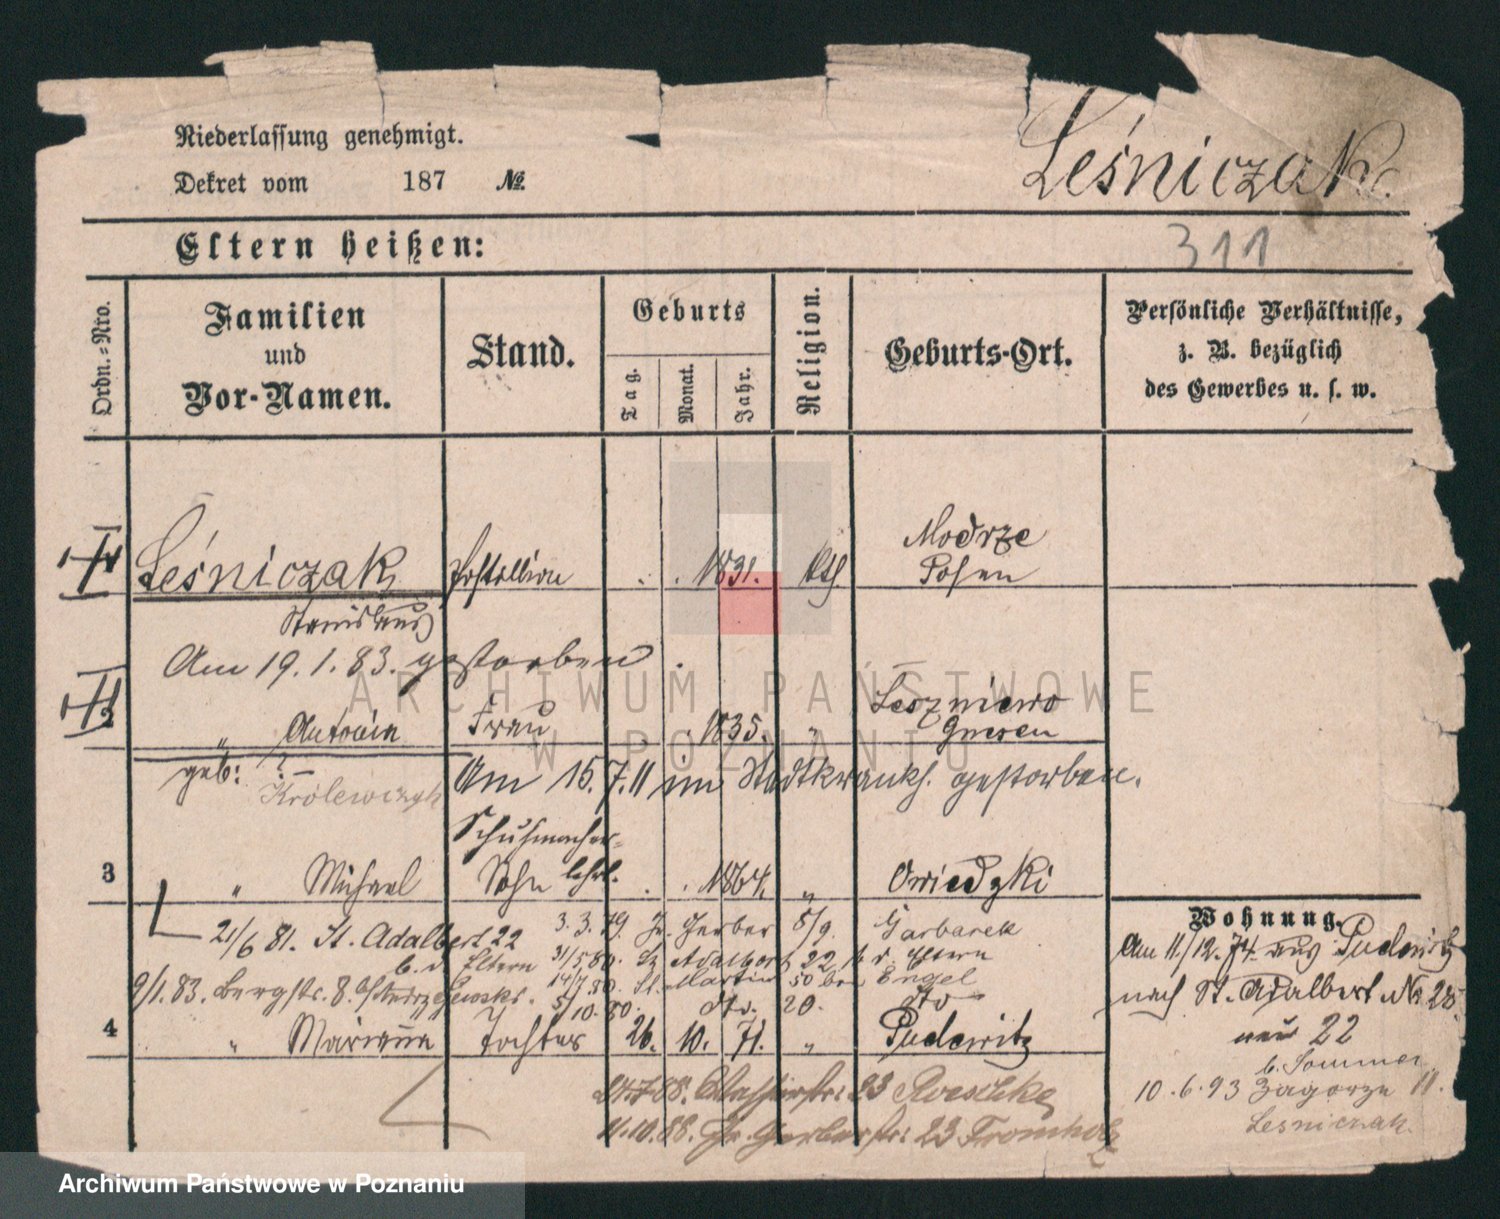 Niederlassung genehmigt.
Dekret vom 187 No.
Leśniczak.
Eltern heißen:
311
Ordn.-Nro.
Familien
und
Vor-Namen.
Stand.
Geburts
Tag.
Monat.
Jahr.
Religion.
Geburts-Ort.
Persönliche Verhältnisse,
z. B. bezüglich
des Gewerbes u. s. w.
1 Leśniczak Postillion 1831. kth Modrze
Posen
Stanislaus
Am 19.1.83. gestorben.
2 " Antonia Frau 1835. " Leszniewo
Gnesen
geb: ?
Królewczyk
Am 15.7.11 im Stadtkrankh. gestorben.
Schuhmacher-
3 " Michael Sohn lehrl. 1864. " Owiedzki
21/6 81. St. Adalbert 22
b. d Eltern
3.3.79. Gr. Gerber 8/9. Garbarek
31/5.80. St Adalbert 22 b. d. Eltern
14/7.80. St. Martin 50 bei Engel
9/1.83. Bergstr. 8.
5/10.80. dto. 20. dto
4 " Marianna Tochter 26. 10. 71. " Pudewitz
24.7.88. Wasserstr: 23
11.10.88. Gr. Gerberstr: 23 Fromholz
Wohnung.
Am 11/12.74. aus Pudewitz
nach St. Adalbert No 25
neu 22
b. Sommer
10.6.93 Zagorze 11.
Lesniczak.
ARCHIWUM PAŃSTWOWE
W POZNANIU
Archiwum Państwowe w Poznaniu